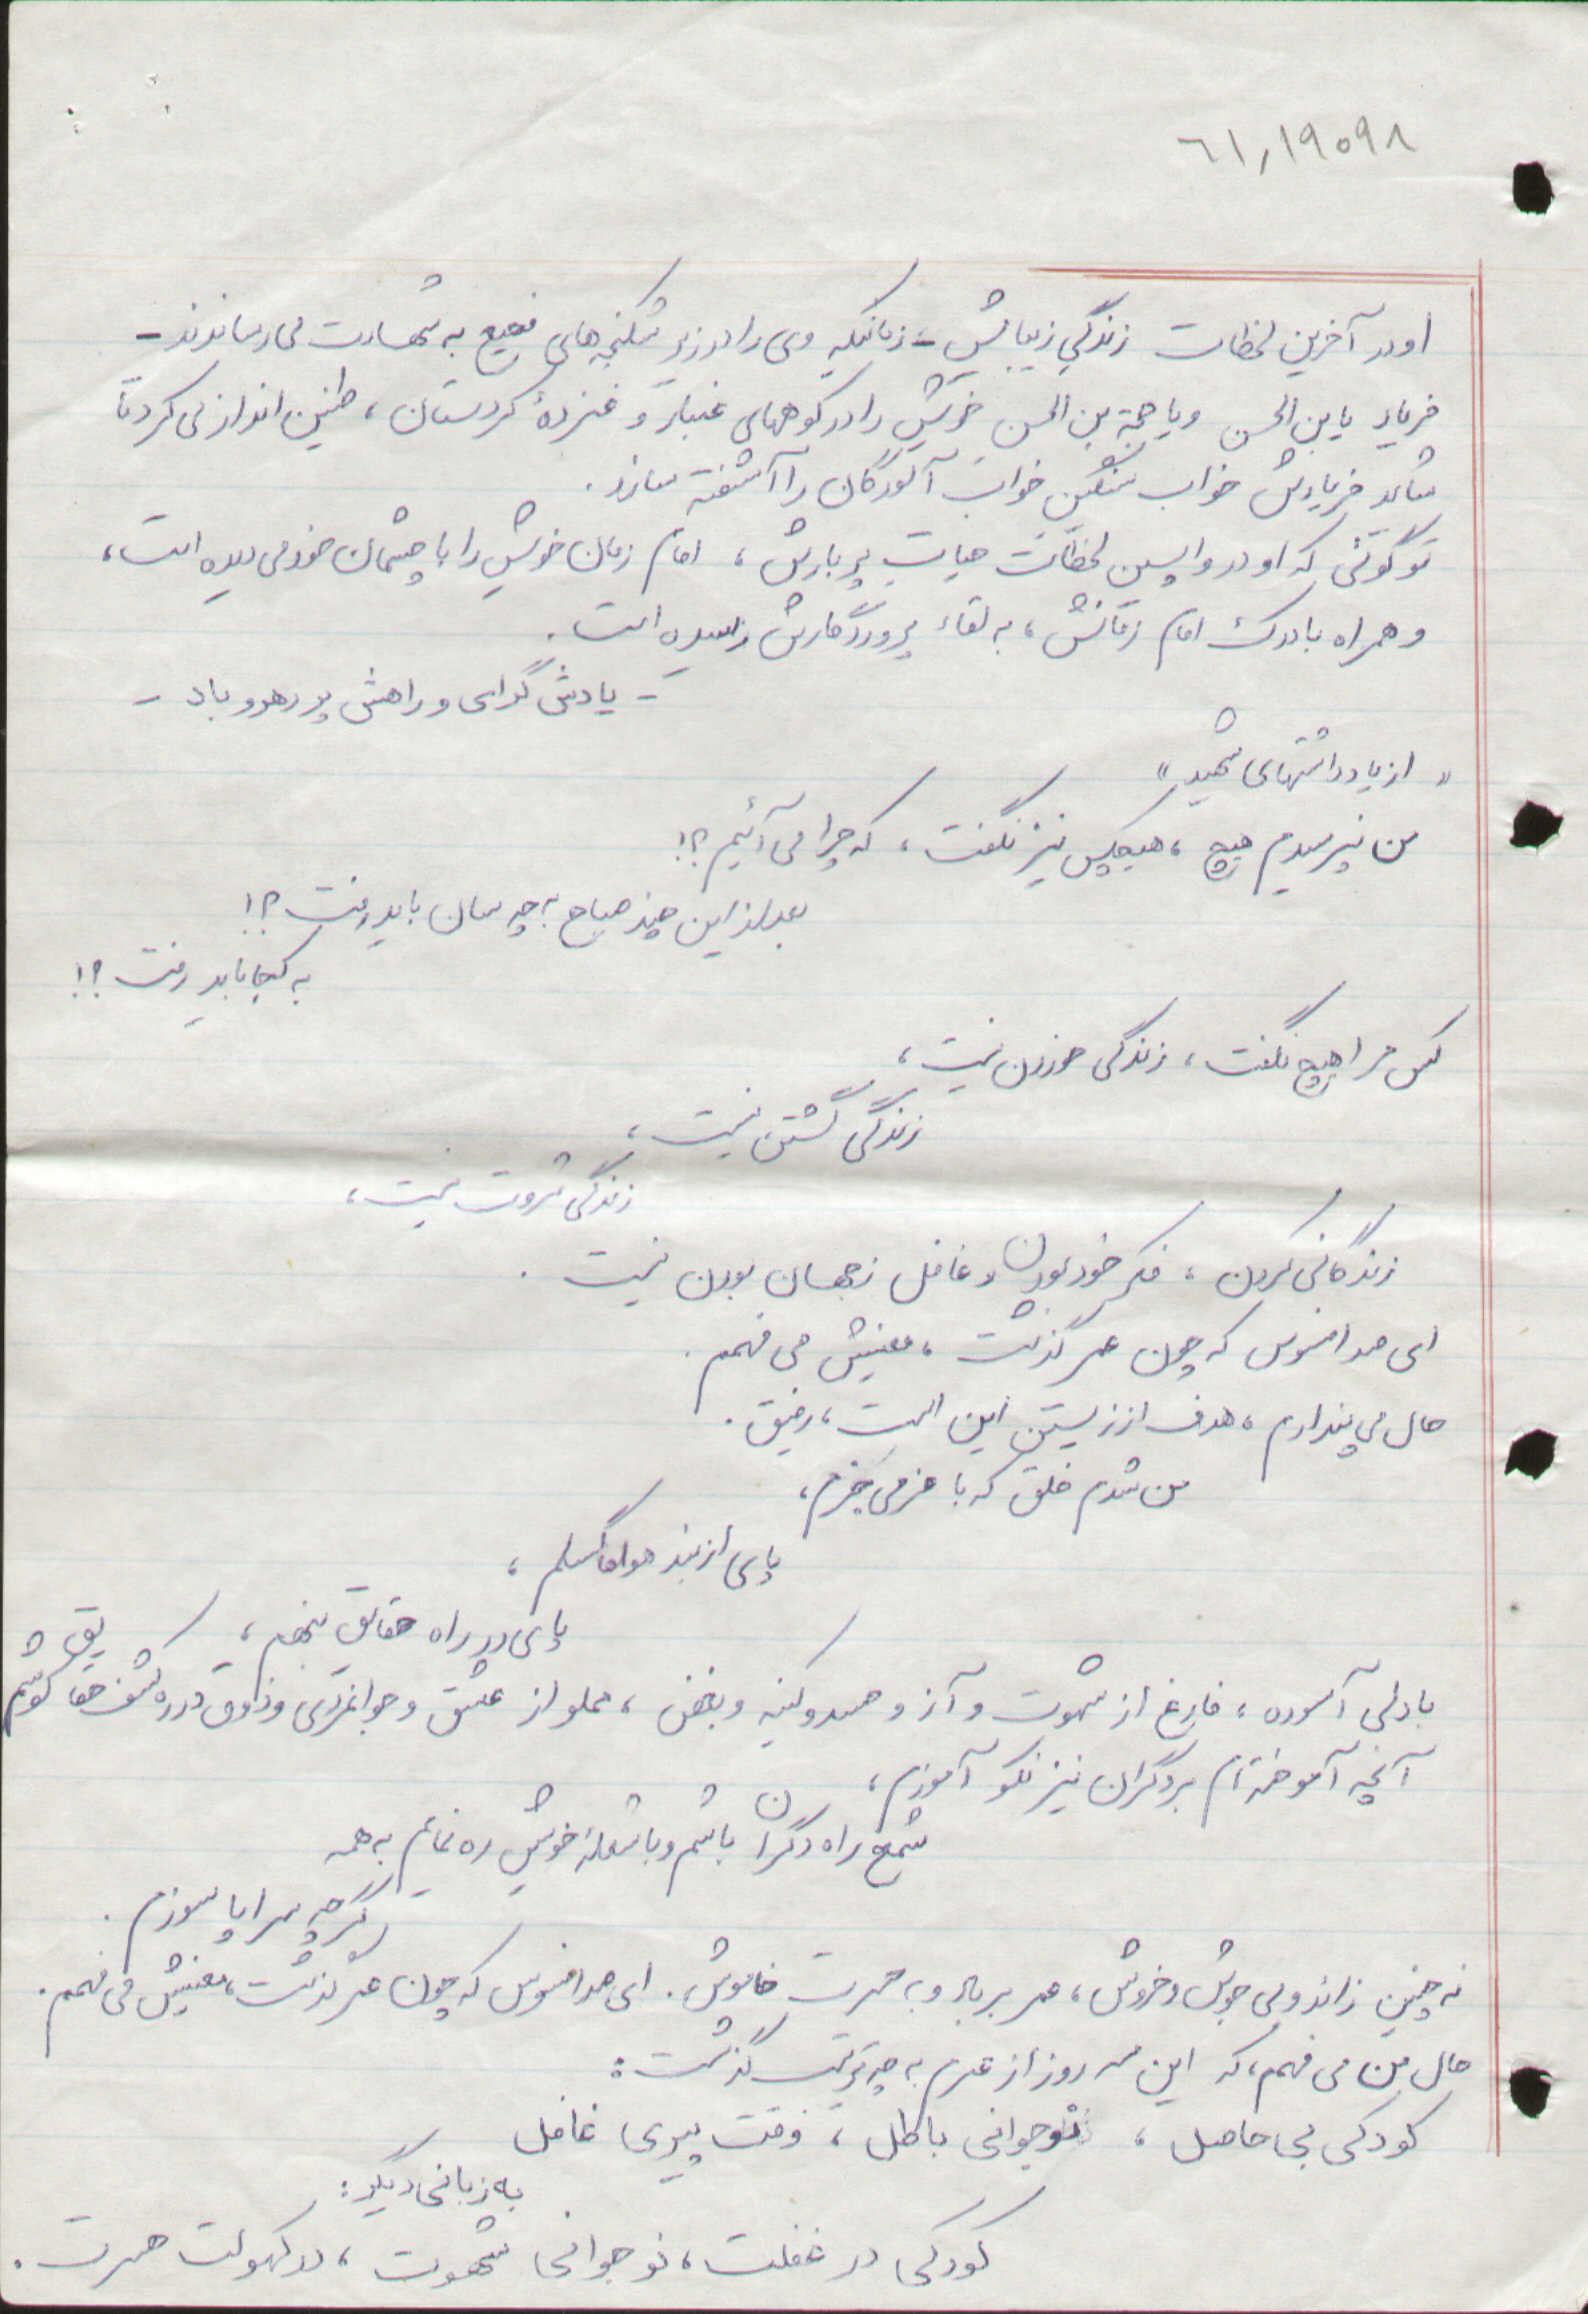 ۶۱٫۱۹۰۹۸
او در آخرین لحظات زندگی زیبایش - زمانیکه وی را در زیر شکنجه‌های فجیع به شهادت می‌رساندند -
فریاد یابن الحسن و یا حجة بن الحسن خویش را در کوههای غمبار و غمزدهٔ کردستان، طنین انداز می‌کرد تا
شاید فریادش خواب سنگین خواب آلودگان را آشفته سازد.
تو گوئی که او در واپسین لحظات حیات پر بارش، امام زمان خویش را با چشمان خود می دیده است،
و همراه با درک امام زمانش، به لقاء پروردگارش رسیده است.
- یادش گرامی و راهش پر رهرو باد -
« از یادداشتهای شهید »
من نپرسیدم هیچ، هیچکس نیز نگفت، که چرا می آئیم؟!
بعد از این چند صباح به چه سان باید رفت؟!
به کجا باید رفت؟!
کس مرا هیچ نگفت، زندگی خوردن نیست،
زندگی گشتن نیست،
زندگی ثروت نیست،
زندگانی کردن، فکر خود بودن و غافل ز جهان بودن نیست.
ای صد افسوس که چون عمر گذشت، معنیش می فهمم.
حال می پندارم، هدف از زیستن این است، رفیق.
من شدم خلق که با عزمی جزم،
پای از بند هواها گسلم،
پای در راه حقایق بنهم،
با دلی آسوده، فارغ از شهوت و آز و حسد و کینه و بغض، مملو از عشق و جوانمردی و ذوق در ره کشف حقایق کوشم
آنچه آموخته‌ام بر دگران نیز نکو آموزم،
شمع راه دگران باشم و با شعلهٔ خویش ره نمایم به همه
گرچه سراپا سوزم.
نه چنین زائد و بی جوش و خروش، عمر بر باد و به حسرت خاموش. ای صد افسوس که چون عمر گذشت، معنیش می فهمم.
حال من می فهمم، که این سه روز از عمرم به چه ترتیب گذشت:
کودکی بی حاصل، نوجوانی باطل، وقت پیری غافل
به زبانی دیگر:
کودکی در غفلت، نوجوانی شهوت، در کهولت حسرت.